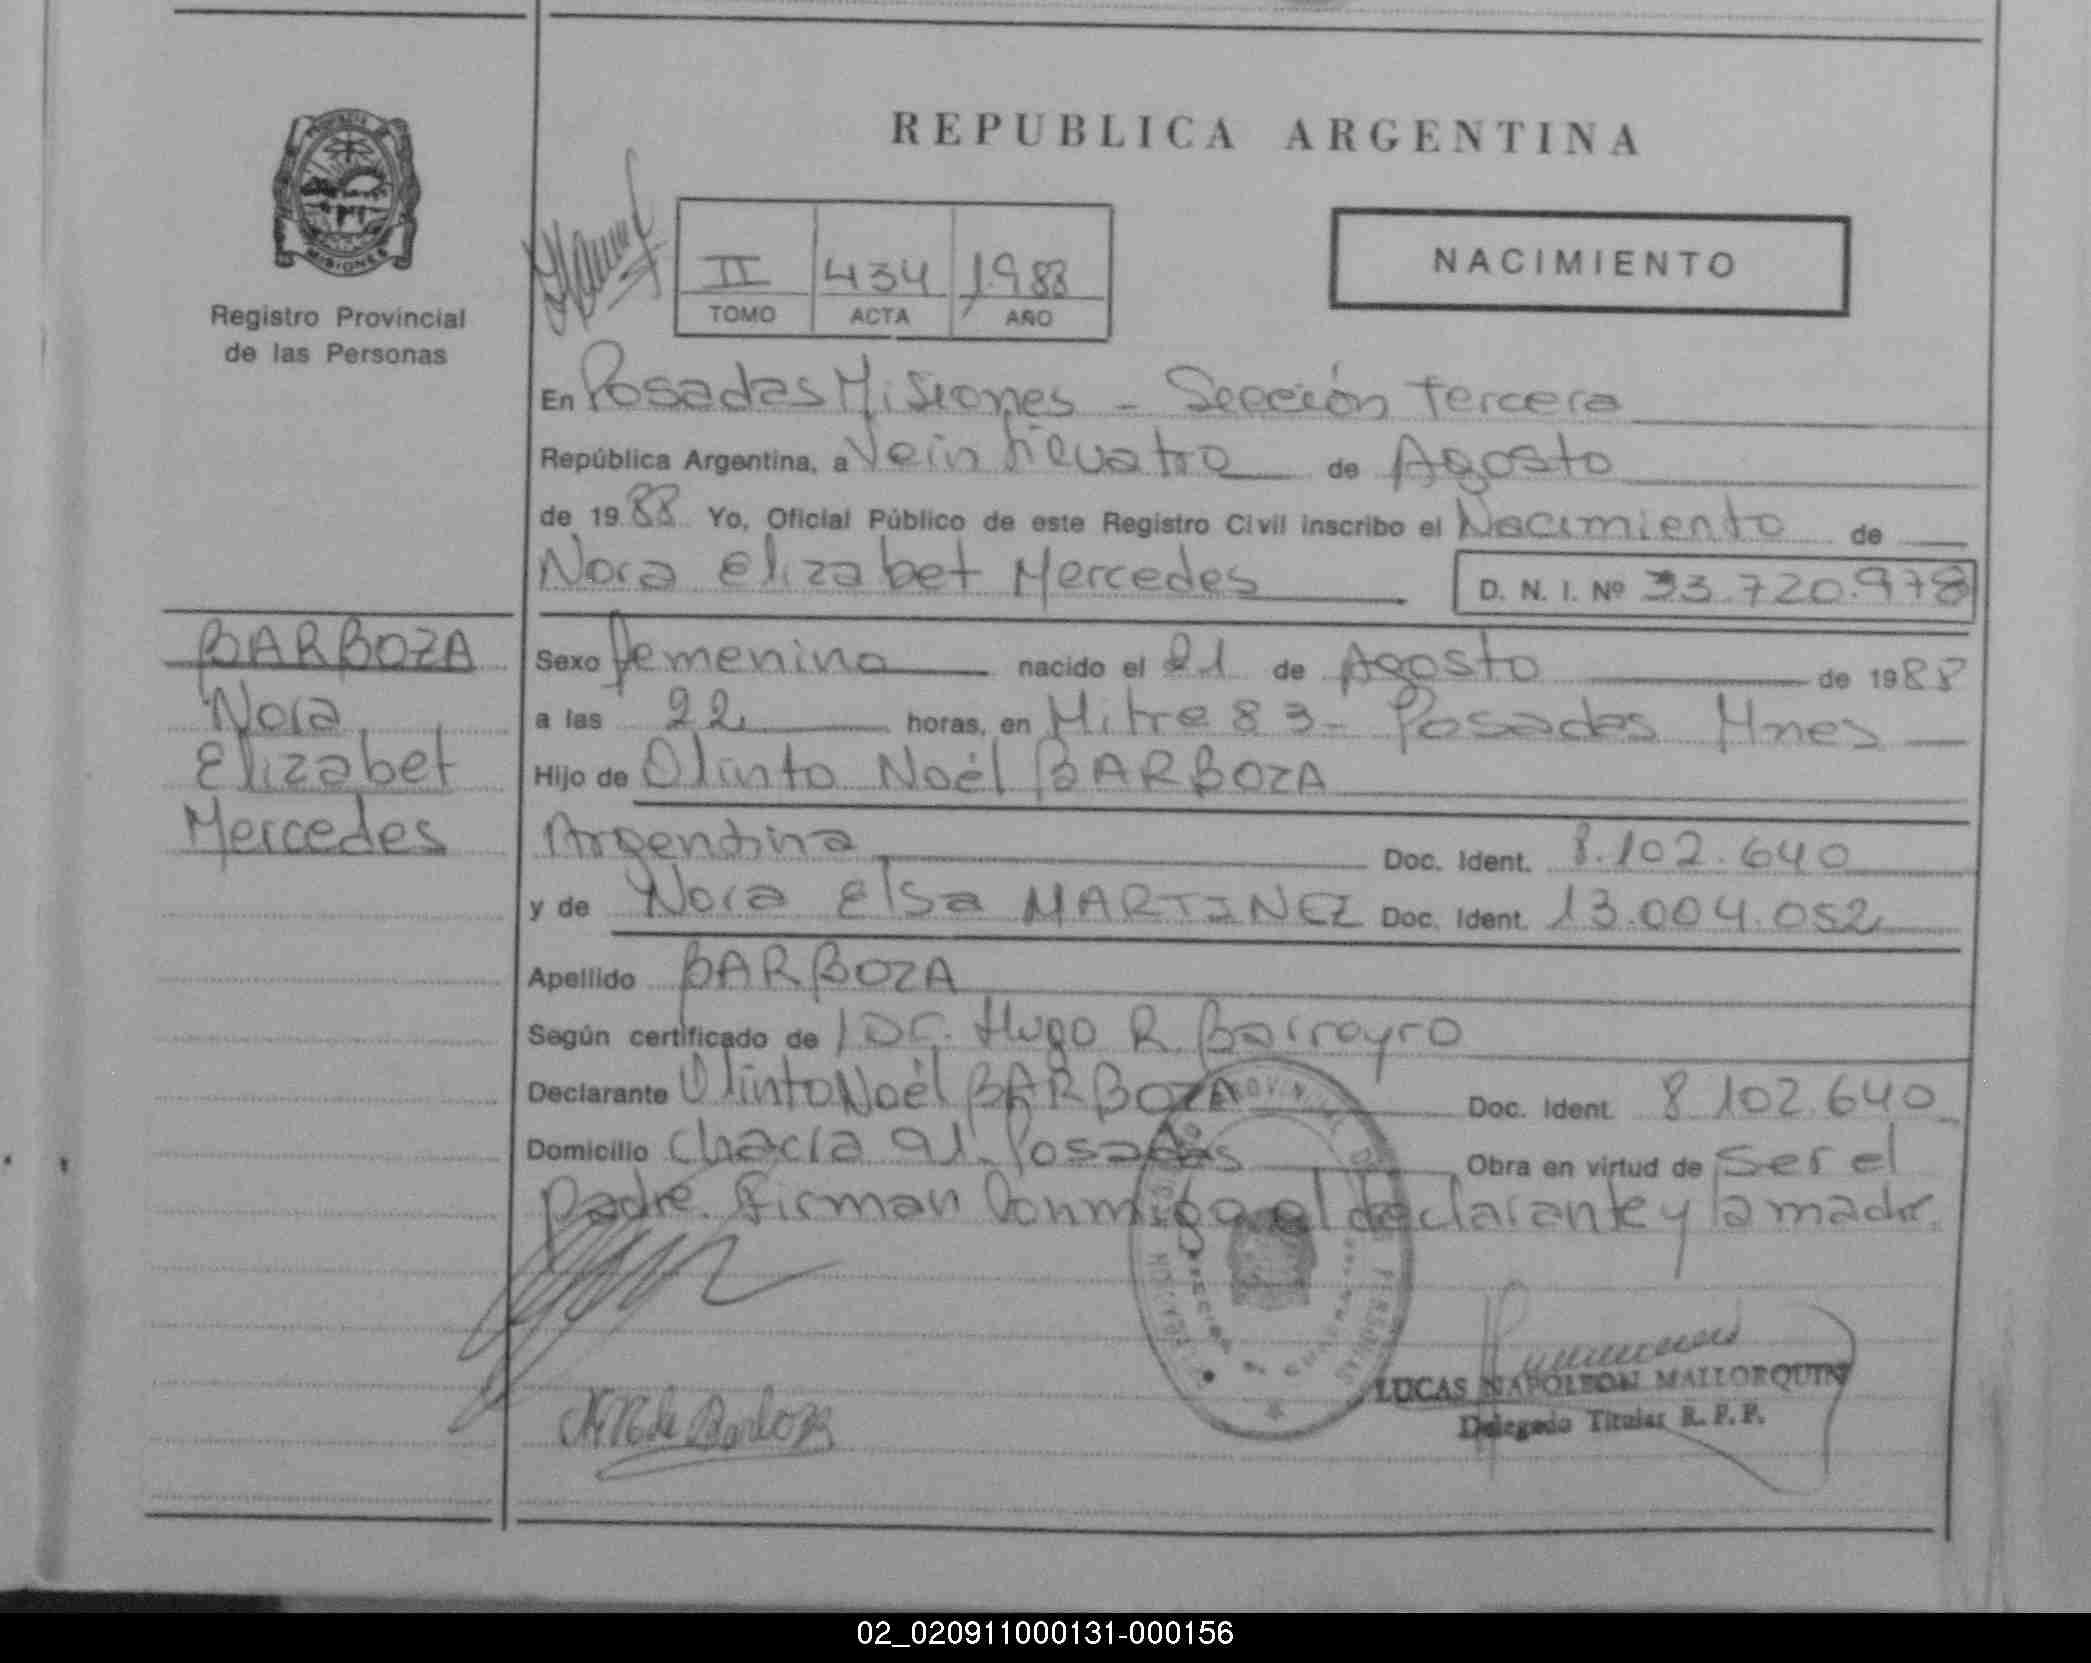 REPUBLICA ARGENTINA
MISIONES
Registro Provincial
de las Personas
II 434 1988
TOMO ACTA AÑO
NACIMIENTO
En Posadas Misiones - Sección tercera
República Argentina, a Veinticuatro de Agosto
de 1988 Yo, Oficial Público de este Registro Civil inscribo el Nacimiento de
Nora Elizabet Mercedes D. N. I. Nº 33.720.978
BARBOZA
Nora
Elizabet
Mercedes
Sexo femenino nacido el 21 de Agosto de 1988
a las 22 horas, en Mitre 83- Posadas Mnes
Hijo de Olinto Noél BARBOZA
Argentina Doc. Ident. 8.102.640
y de Nora Elsa MARTINEZ Doc. Ident. 13.004.052
Apellido BARBOZA
Según certificado de / Dr. Hugo R. Barreyro
Declarante Olinto Noél BARBOZA Doc. Ident. 8.102.640
Domicilio Chacra 91- Posadas Obra en virtud de ser el
padre. firman conmigo el declarante y la madre.
LUCAS NAPOLEON MALLORQUIN
Delegado Titular R. P. P.
02_020911000131-000156